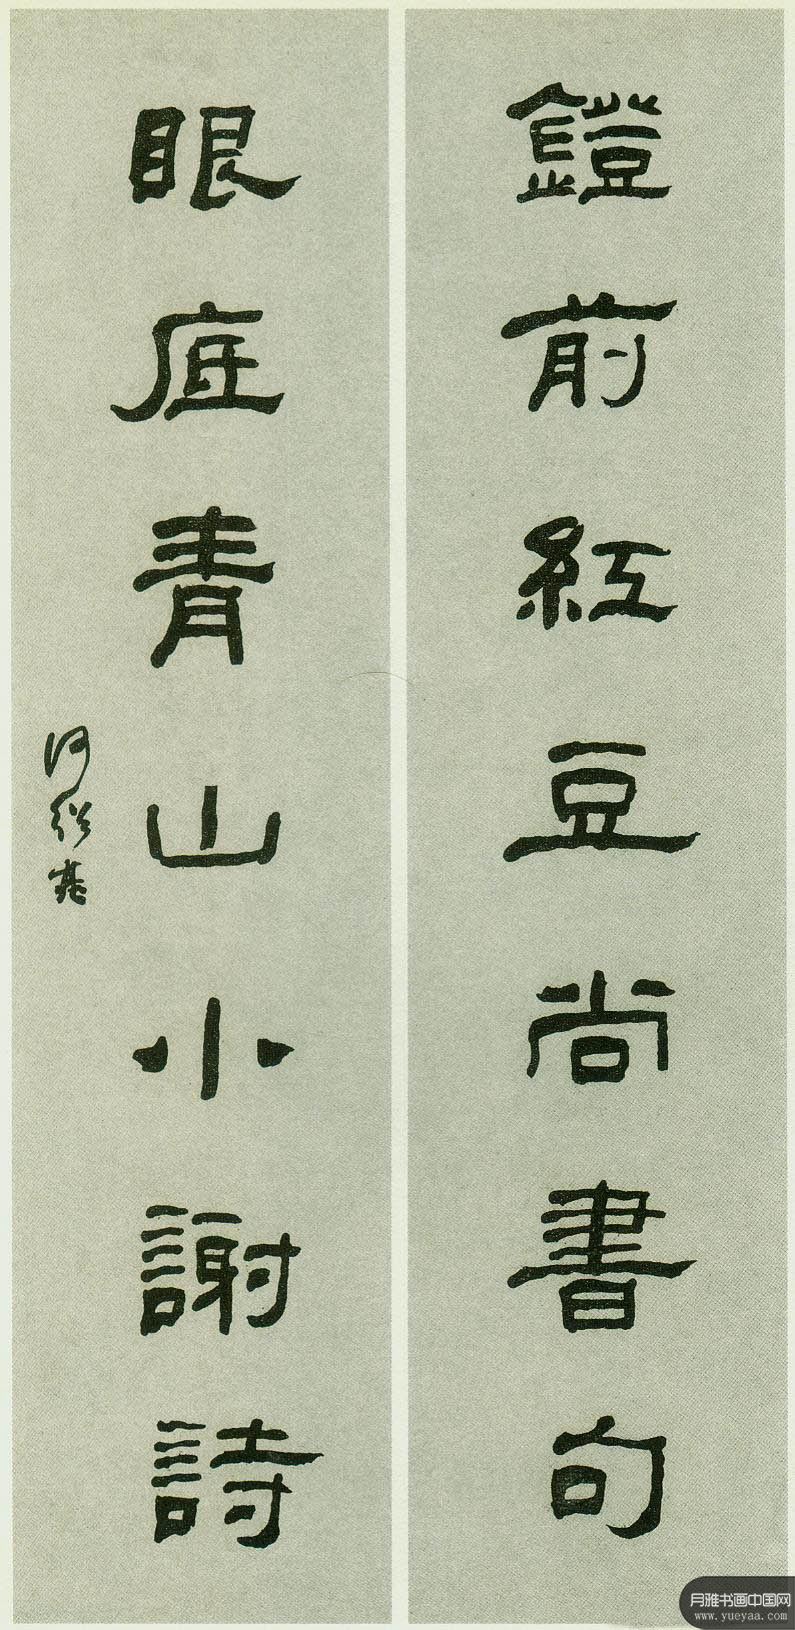 鐙前紅豆尚書句
眼底青山小謝詩
何紹基
月雅书画中国网
www.yueyaa.com